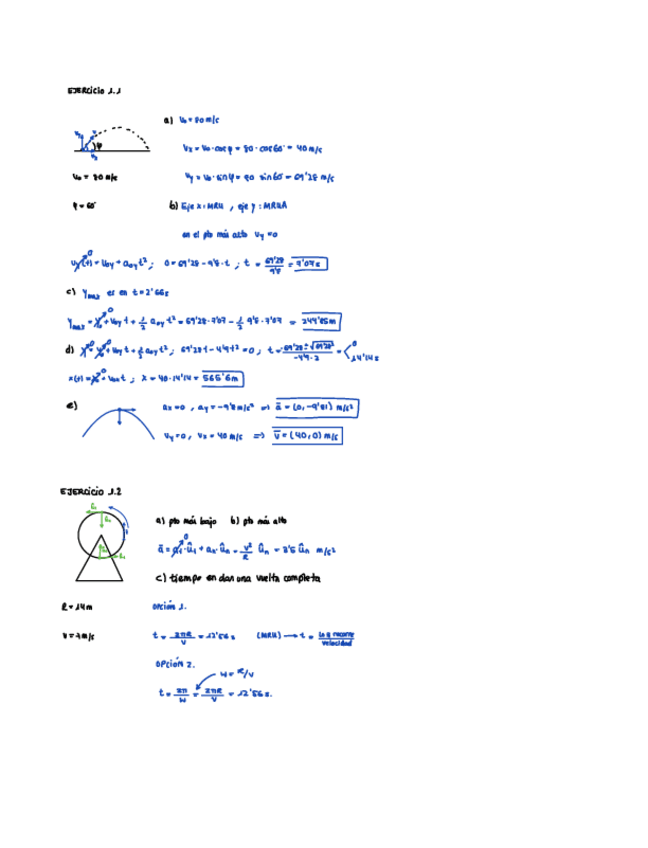 EJERCICIO 1.1
a) v₀ = 80 m/s
vx = v₀·cosφ = 80·cos60 = 40 m/s
v₀ = 80 m/s
vy = v₀·sinφ = 80 sin60 = 69'28 m/s
φ = 60
b) Eje x: MRU, eje y: MRUA
en el pto más alto vy = 0
vy(t) = v₀y + a₀y t²; 0 = 69'28 - 9'8·t; t = 69'28/9'8 = 7'07s
c) ymax es en t = 2'66s
ymax = y₀ + v₀y t + 1/2 a₀y t² = 69'28·7'07 - 1/2 9'8·7'07 = 244'85m
d) y = y₀ + v₀y t + 1/2 a₀y t²; 69'28t - 4'9t² = 0; t = -69'28 ± √69'28² / -4'9·2 = < 0 14'14s
x(t) = x₀ + v₀x t; x = 40·14'14 = 565'6m
e) ax = 0, ay = -9'8 m/s² => a = (0, -9'81) m/s²
vy = 0, vx = 40 m/s => v = (40, 0) m/s
EJERCICIO 1.2
a) pto más bajo b) pto más alto
c) tiempo en dar una vuelta completa
R = 14m
OPCIÓN 1.
v = 7 m/s
t = 2πR/v = 12'56 s (MRU) → t = velocidad
OPCIÓN 2.
w = R/v
t = 2π/w = 2πR/v = 12'56s.